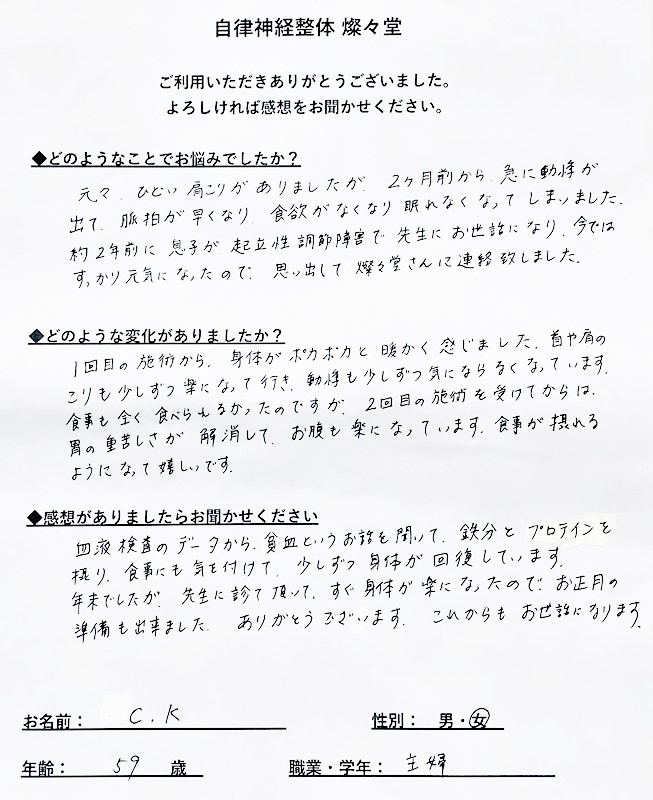 自律神経整体 燦々堂
ご利用いただきありがとうございました。
よろしければ感想をお聞かせください。
◆どのようなことでお悩みでしたか？
元々、ひどい肩こりがありましたが、2ヶ月前から、急に動悸が
出て、脈拍が早くなり、食欲がなくなり眠れなくなってしまいました。
約2年前に息子が起立性調節障害で先生にお世話になり、今では
すっかり元気になったので、思い出して燦々堂さんに連絡致しました。
◆どのような変化がありましたか？
1回目の施術から、身体がポカポカと暖かく感じました。首や肩の
こりも少しずつ楽になって行き、動悸も少しずつ気にならなくなっています。
食事も全く食べられなかったのですが、2回目の施術を受けてからは、
胃の重苦しさが解消して、お腹も楽になっています。食事が摂れる
ようになって嬉しいです。
◆感想がありましたらお聞かせください
血液検査のデータから、貧血というお話を聞いて、鉄分とプロテインを
摂り、食事にも気を付けて、少しずつ身体が回復しています。
年末でしたが、先生に診て頂いて、すぐ身体が楽になったので、お正月の
準備も出来ました。ありがとうございます。これからもお世話になります。
お名前： C.K 性別： 男・女
年齢： 59 歳 職業・学年： 主婦